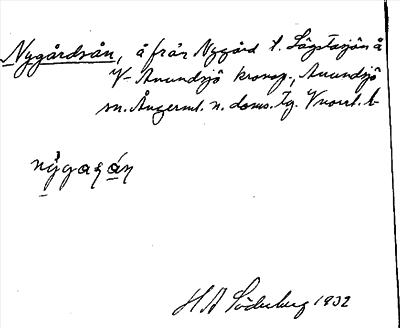 Nygårdsån, å från Nygård t. Lägstasjön å
V- Anundsjö kronop., Anundsjö
sn. Ångerml. n. doms. Tg. Vnorrl. l.
nygaṣån
H A Söderberg 1932